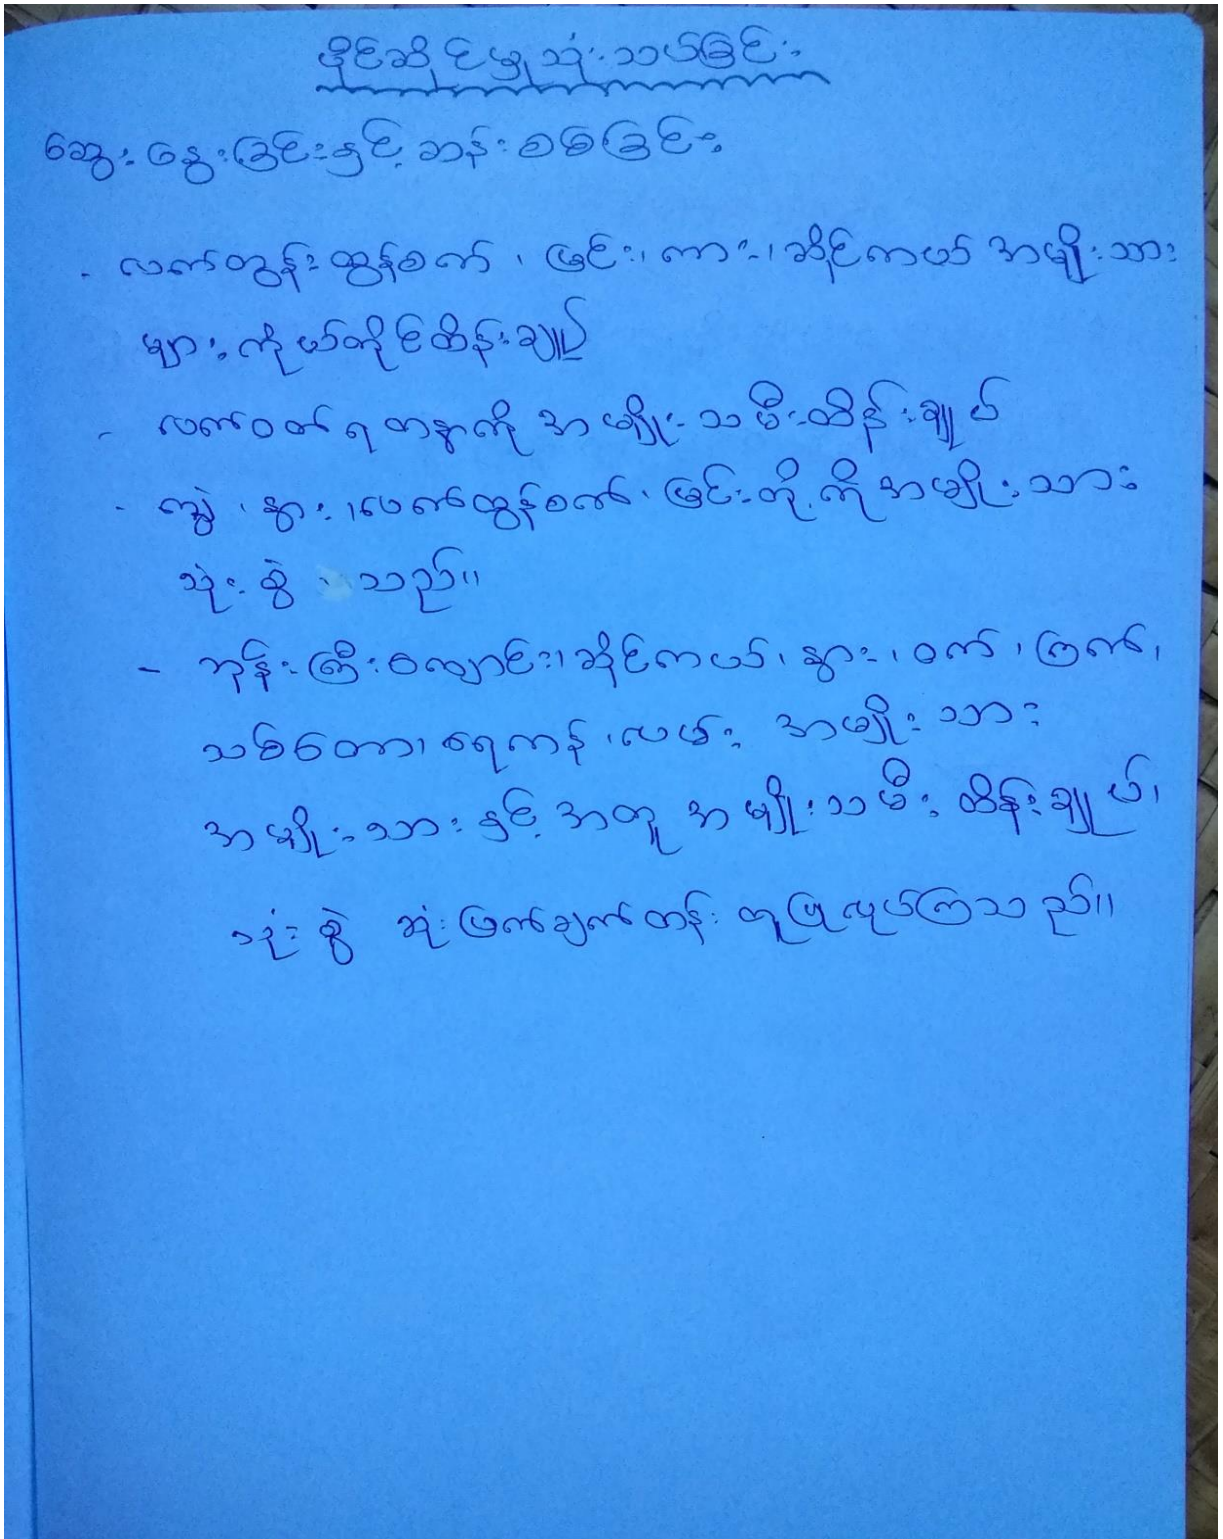 ပိုင်ဆိုင်မှုသုံးသပ်ခြင်း
ဆွေးနွေးခြင်းနှင့် ဆန်းစစ်ခြင်း
- လက်တွန်းထွန်စက်၊ မြင်း၊ ကား၊ ဆိုင်ကယ် အမျိုးသား
များ ကိုယ်တိုင်ထိန်းချုပ်
- လက်ဝတ်ရတနာကို အမျိုးသမီးထိန်းချုပ်
- ကျွဲ၊ နွား၊ လက်ထွန်စက်၊ မြင်းတို့ကို အမျိုးသား
သုံးစွဲ သည်။
- ဘုန်းကြီးကျောင်း၊ ဆိုင်ကယ်၊ နွား၊ ဝက်၊ ကြက်၊
သစ်တော၊ ရေကန်၊ လမ်း အမျိုးသား
အမျိုးသားနှင့်အတူ အမျိုးသမီး ထိန်းချုပ်၊
သုံးစွဲ ဆုံးဖြတ်ချက်တန်းတူပြုလုပ်ကြသည်။